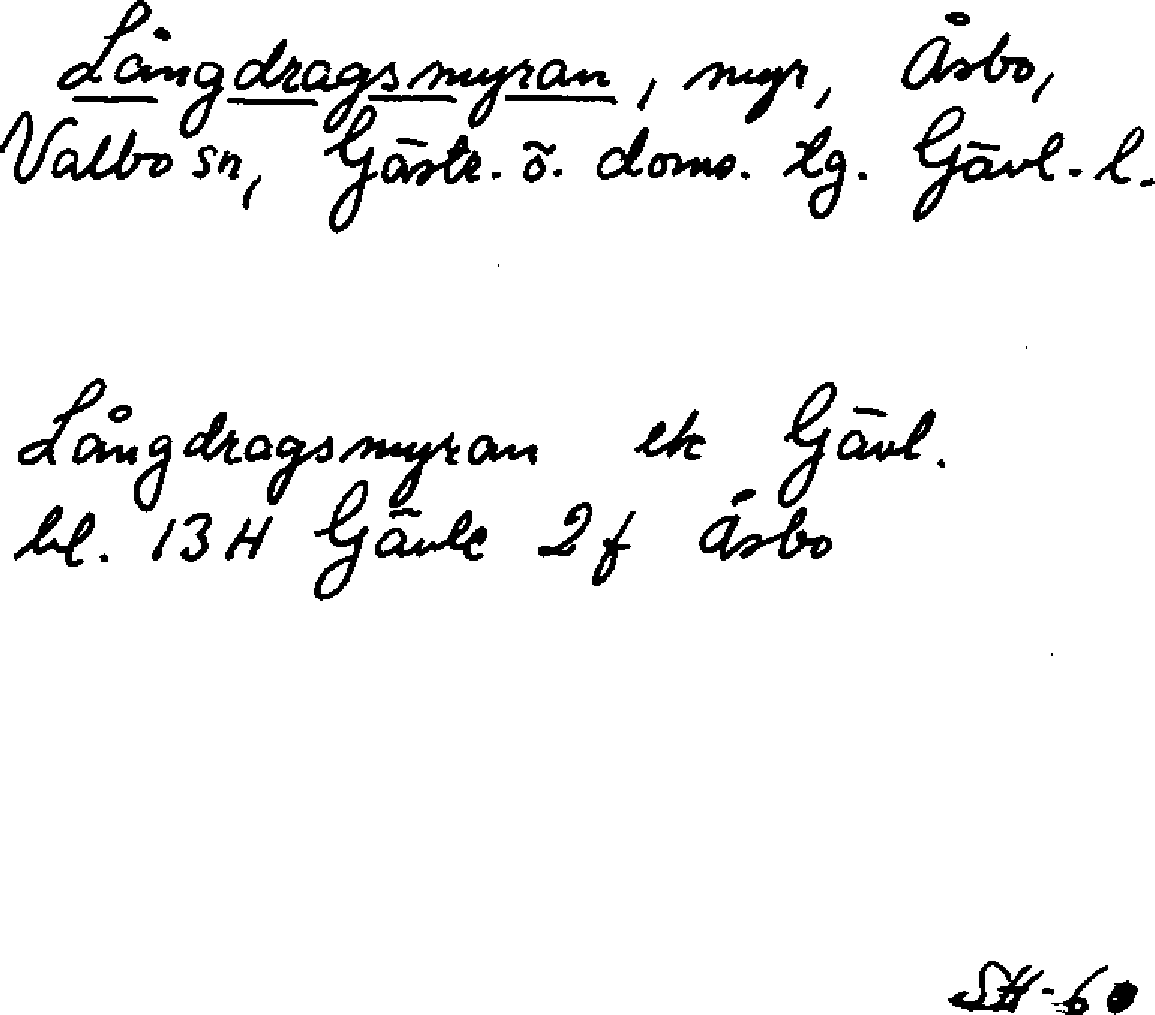 Långdragsmyran, myr, Åsbo,
Valbo sn, Gästr. ö. doms. tg. Gävl. l.
Långdragsmyran ek Gävl.
bl. 13 H Gävle 2 f Åsbo
SH-60